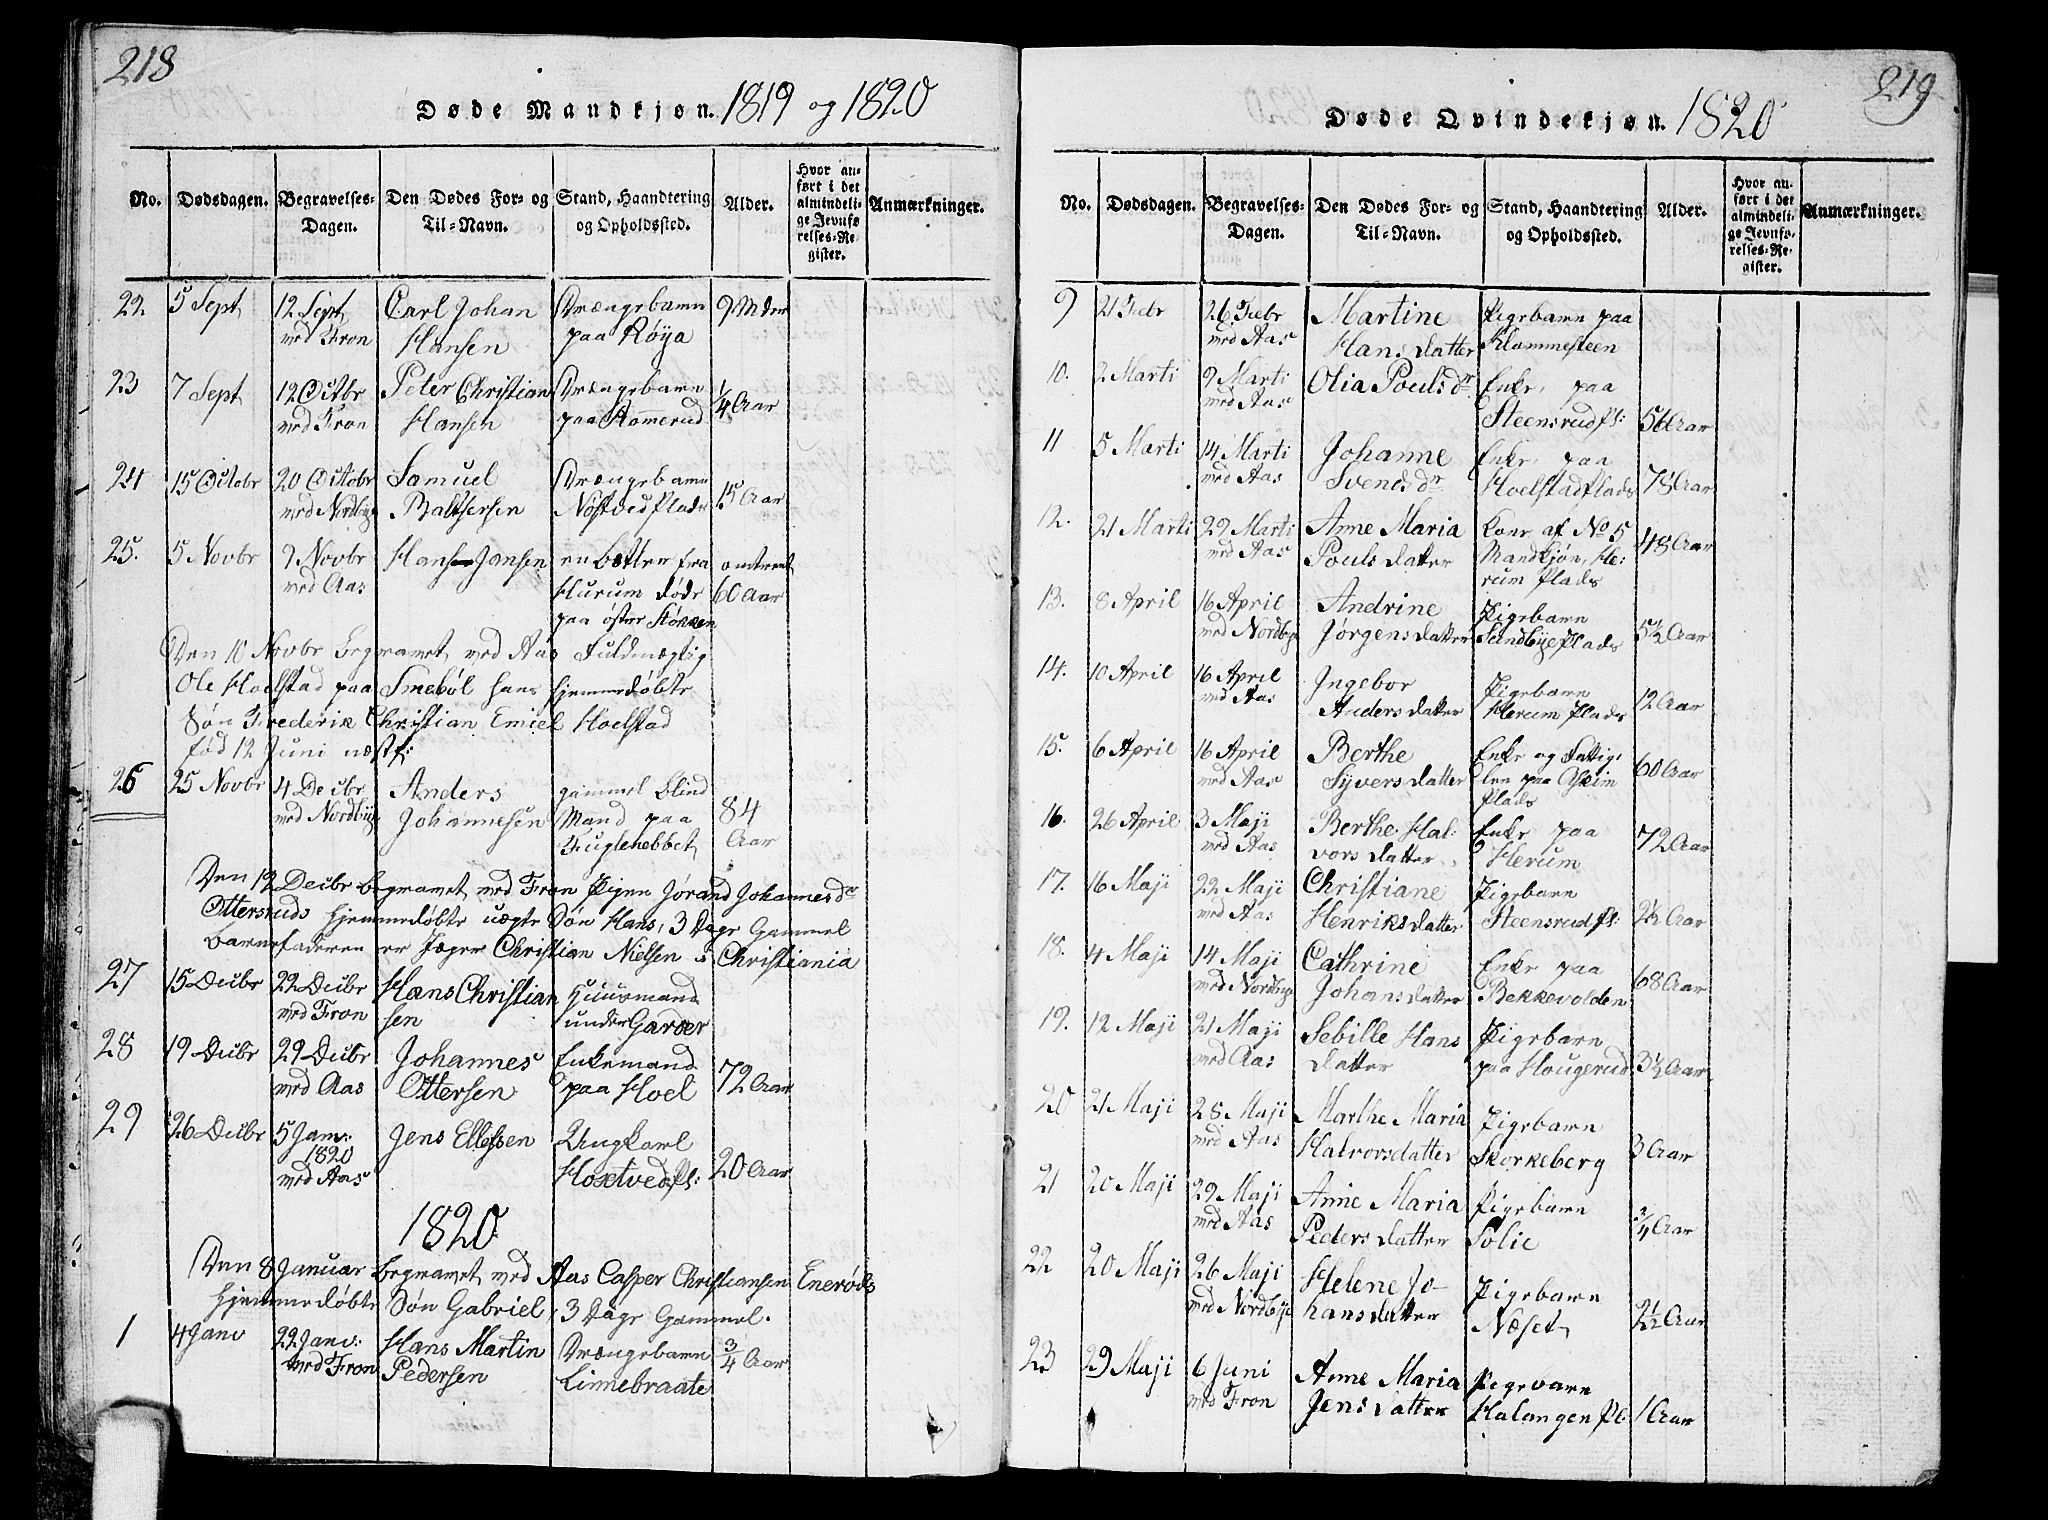 218
Døde Mandkjøn. 1819 og 1820
No. Dødsdagen. Begravelses-Dagen. Den Dødes For- og Til-Navn. Stand, Haandtering og Opholdssted. Alder. Hvor anført i det almindelige Jevnførelses-Register. Anmærkninger.
22 5 Sept 12 Sept Carl Johan Drængebarn 9 Mdr
ved Fron Hansen paa Røya
23 7 Sept 12 Octbr Peter Christian Drængebarn 1/4 Aar
ved Fron Hansen paa Romerud
24 15 Octobr 20 Octobr Samuel Drængebarn 15 Aar
ved Nordbye Baltsersen Nøstvedplads
25. 5 Novbr 9 Novbr Hans Jansen en betler fra omtrent
ved Aas Hurum døde 60 Aar
paa øster Støkken
Den 10 Novbr begravet ved Aas Fuldmægtig
Ole Hoelstad paa Smebøl hans hjemmedøbte
Søn Frederik Christian Emiel Hoelstad
fød 12 Juni næstf:
26 25 Novbr 4 Decbr Anders gammel blind 84
ved Nordbye Johannesen Mand paa Aar
Fuglehebbet
Den 12 Decbr begravet ved Fron Pigen Jørand Johannesdr
Ottersruds hjemmedøbte uægte Søn Hans, 3 Dage Gammel
barnefaderen er Jæger Christian Nielsen i Christiania
27 15 Decbr 22 Decbr Hans Christian Huusmand
ved Fron sen under Garder
28 19 Decbr 29 Decbr Johannes Enkemand
ved Aas Ottersen paa Hoel 72 Aar
29 26 Decbr 5 Jan: Jens Ellefsen Ungkarl
1820
ved Aas Hoxtvedpl: 20 Aar
1820
Den 8 Januar begravet ved Aas Casper Christiansen Enerøds
hjemmedøbte Søn Gabriel, 3 Dage Gammel.
1 4 Janv 22 Janv: Hans Martin Drængebarn 3/4 Aar
ved Fron Pedersen Linnebraate
219
Døde Qvindekjøn. 1820
No. Dødsdagen. Begravelses-Dagen. Den Dødes For- og Til-Navn. Stand, Haandtering og Opholdssted. Alder. Hvor anført i det almindelige Jevnførelses-Register. Anmærkninger.
9 21 Febr 26 Febr Martine Pigebarn paa
ved Aas Hansdatter Klommesteen
10. 2 Marti 9 Marti Olia Poulsdr Enke, paa
ved Aas Steensrudpl: Aar
11 5 Marti 14 Marti Johanne Enke, paa
ved Aas Svendsdr Hoelstadplads Aar
12. 21 Marti 29 Marti Anne Maria Kone af No 5 48 Aar
ved Aas Poulsdatter Mandkjøn, He:
rum Plads
13. 8 April 16 April Andrine Pigebarn
ved Nordbye Jørgensdatter Sundbyeplads 5 1/2 Aar
14. 10 April 16 April Ingebor Pigebarn 12 Aar
ved Aas Andersdatter Herum Plads
15. 6 April 16 April Berthe Enke og Fattig: 60 Aar
ved Aas Syversdatter len paa Askim
Plads
16. 26 April 3 Maji Berthe Hal: Enke paa 72 Aar
ved Aas vorsdatter Herum
17. 16 Maji 22 Maji Christiane Pigebarn
ved Aas Henriksdatter Steensrudpl: 2 1/2 Aar
18. 4 Maji 14 Maji Cathrine Enke paa 68 Aar
ved Nordbye Johansdatter Bekkevolden
19. 12 Maji 21 Maji Sebille Hans Pigebarn
ved Aas datter paa Hougerud 3 1/2 Aar
20 21 Maji 28 Maji Marthe Maria Pigebarn
ved Aas Halvorsdatter Skorkeberg 3 Aar
21 20 Maji 29 Maji Anne Maria Pigebarn
ved Aas Pedersdatter Solie 3/4 Aar
22 20 Maji 26 Maji Helene Jo- Pigebarn
ved Nordbye hansdatter Næset 2 1/2 Aar
23 29 Maji 6 Juni Anne Maria Pigebarn
ved Fron Jensdatter Halangen Pl 1 Aar